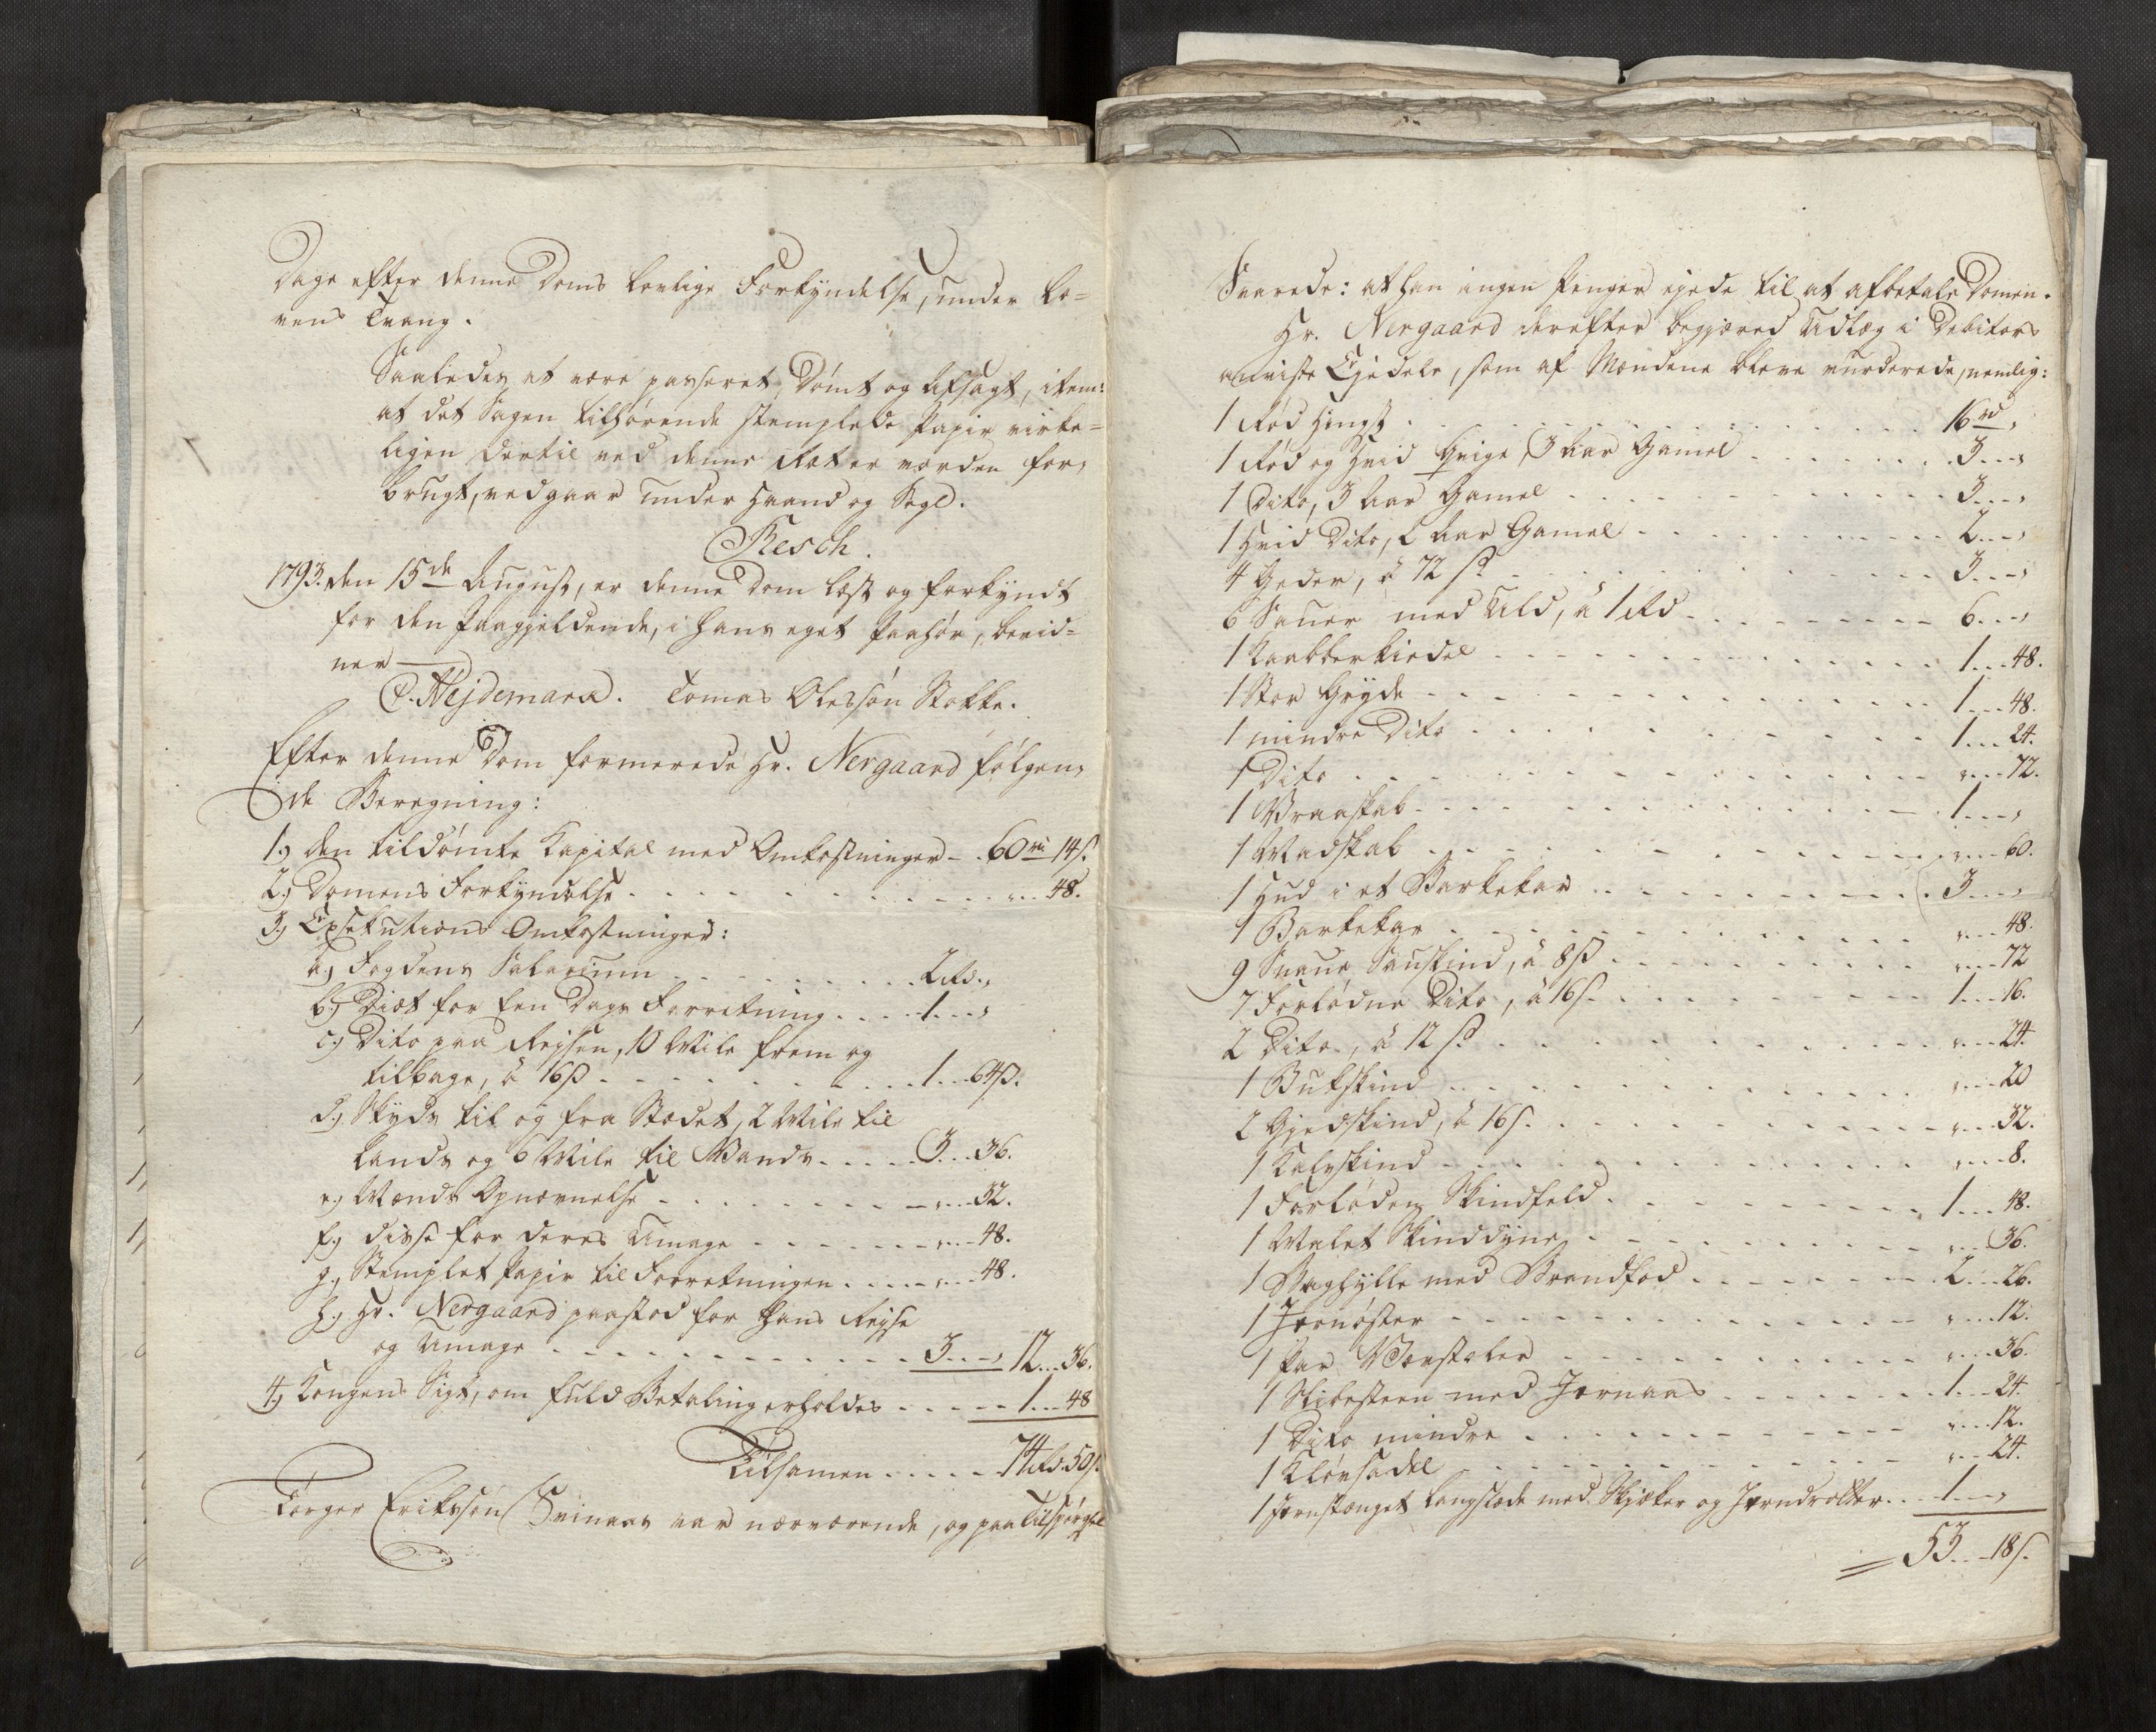 Dage efter denne Doms lovlige Forkyndelse, under Lo=
vens Tvang.
Saaledes at være passeret, Dømt og Afsagt, item:
at det Sagen tilhørende stemplede Papir virke=
ligen dertil ved denne Ret er vorden for,
brugt, vedgaar under Haand og Segl.
Resch.
1793. den 15de August, er denne Dom læst og forkyndt
for den Paagjeldende, i hans eget Paahør, bevid=
ner
C. Hejdemark. Tomas Olessøn Stokke.
Efter denne Dom formerede Hr. Nergaard følgen,
de Beregning:
1.) den tildømte Kapital med Omkostninger - . 60 rd 14 s.
2.) Domens Forkyndelse . . . „ . . . 48.
3.) Exsekutions Omkostninger:
a.) Fogdens Salarium . . . 2 Rd. „
b.) Diæt for Een Dags Forretning . . . 1 . . . „
c.) Dito paa Rejsen, 10 Mile frem og
tilbage, à 16 s . . . 1 . . . 64 s.
d.) Skyds til og fra Stædet, 2 Mile til
Lands og 6 Mile til Vands . . . 3 . . . 36.
e.) Mænds Opnævnelse . . . „ . . . 32.
f.) disse for deres Umage . . . „ . . . 48.
g.) Stemplet Papir til Forretningen . . . „ . . . 48.
h.) Hr. Nergaard paastod for hans Rejse
og Umage . . . 3 . . . „ 12 . . . 36.
4.) Kongens Sigt, om fuld Betaling erholdes . . . 1 . . . 48
Tilsamen . . . 74 Rd. 50 s.
Torger Erikssøn Svinaas var nærværende, og paa Tilspørgsel
Svarede: at han ingen Penger ejede til at afbetale Domen.
Hr. Nergaard derefter begjæred Udlæg i Debitors
anviste Ejedele, som af Mændene bleve vurderede, nemlig:
1 Rød Hingst . . . 16 rd „
1 Rød og Hvid Qvige, 3 Aar Gamel . . . 3 . . . „
1 Dito, 3 Aar Gamel . . . 3 . . . „
1 Hvid Dito, 2 Aar Gamel . . . 2 . . . „
4 Geder, à 72 s. . . . 3 . . . „
6 Sauer med Uld, à 1 Rd . . . 6 . . . „
1 Kaabberkiedel . . . 1 . . . 48.
1 Stor Gryde . . . 1 . . . 48.
1 mindre Dito . . . 1 . . . 24.
1 Dito . . . „ . . . 72.
1 Vraaskab . . . 1 . . . „
1 Madskab . . . „ . . . 60.
1 Hud i et Barkekar . . . 3 . . . „
1 Barkekar . . . „ . . . 48.
9 Snaue Sauskind, à 8 s . . . „ . . . 72
7 Forlødne Dito, à 16 s. . . . 1 . . . 16.
2 Dito, à 12 s. . . . „ . . . 24.
1 Bukskind . . . „ . . . 20
2 Gjedskind, à 16 s. . . . „ . . . 32.
1 Kalvskind . . . „ . . . 8.
1 Forløden Skindfeld . . . 1 . . . 48.
1 Malet Skinddyne . . . „ . . . 36.
1 Baghylle med Brandfod . . . 2 . . . 26.
1 Jernøster . . . „ . . . 12.
1 Par Vævstoler . . . „ . . . 36.
1 Slibesteen med Jernaas . . . 1 . . . 24.
1 Dito mindre . . . „ . . . 12.
1 Kløvsadel . . . „ . . . 24.
1 Jernstænget Langslæde med Skjæker og Jerndrolter . . . 1 . . . „
= 53 . . . 18 s.